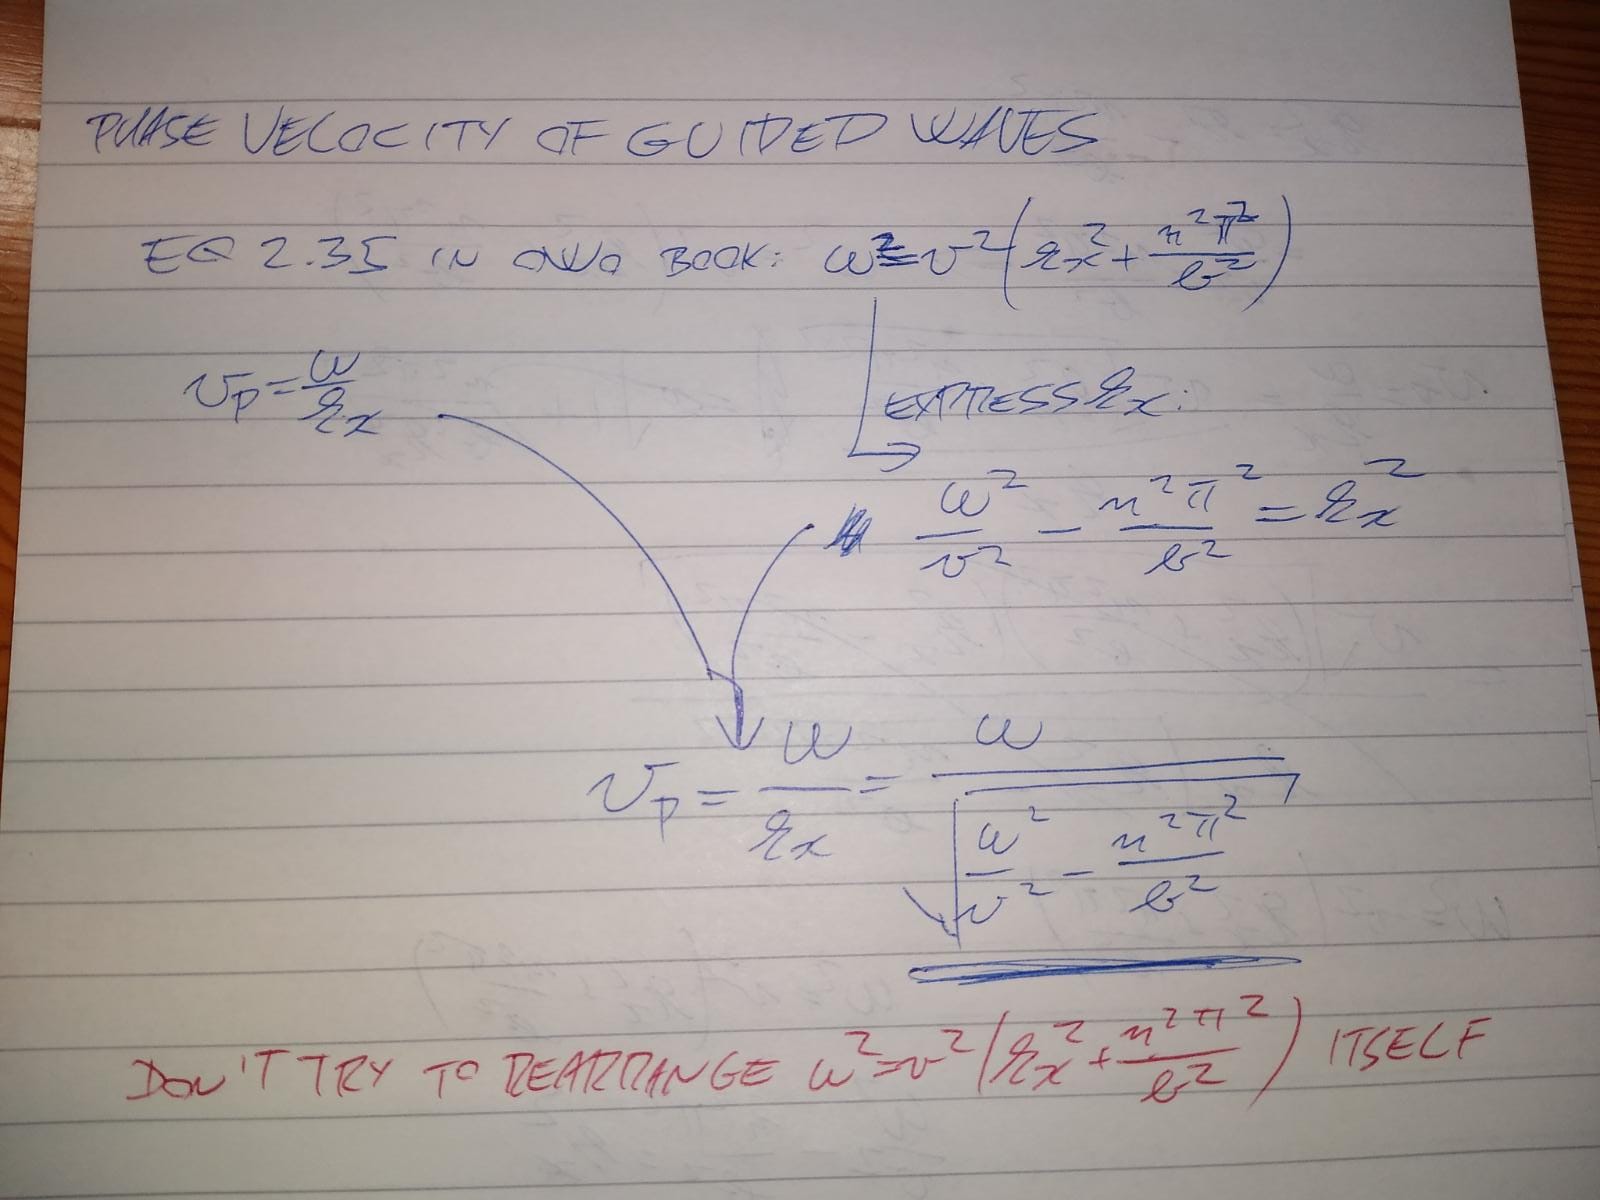 PHASE VELOCITY OF GUIDED WAVES
EQ 2.35 IN OWO BOOK: ω² = v²(kx² + n²π²/b²)
vp = ω/kx
EXPRESS kx:
ω²/v² − n²π²/b² = kx²
vp = ω/kx = ω/√(ω²/v² − n²π²/b²)
DON'T TRY TO REARRANGE ω² = v²(kx² + n²π²/b²) ITSELF